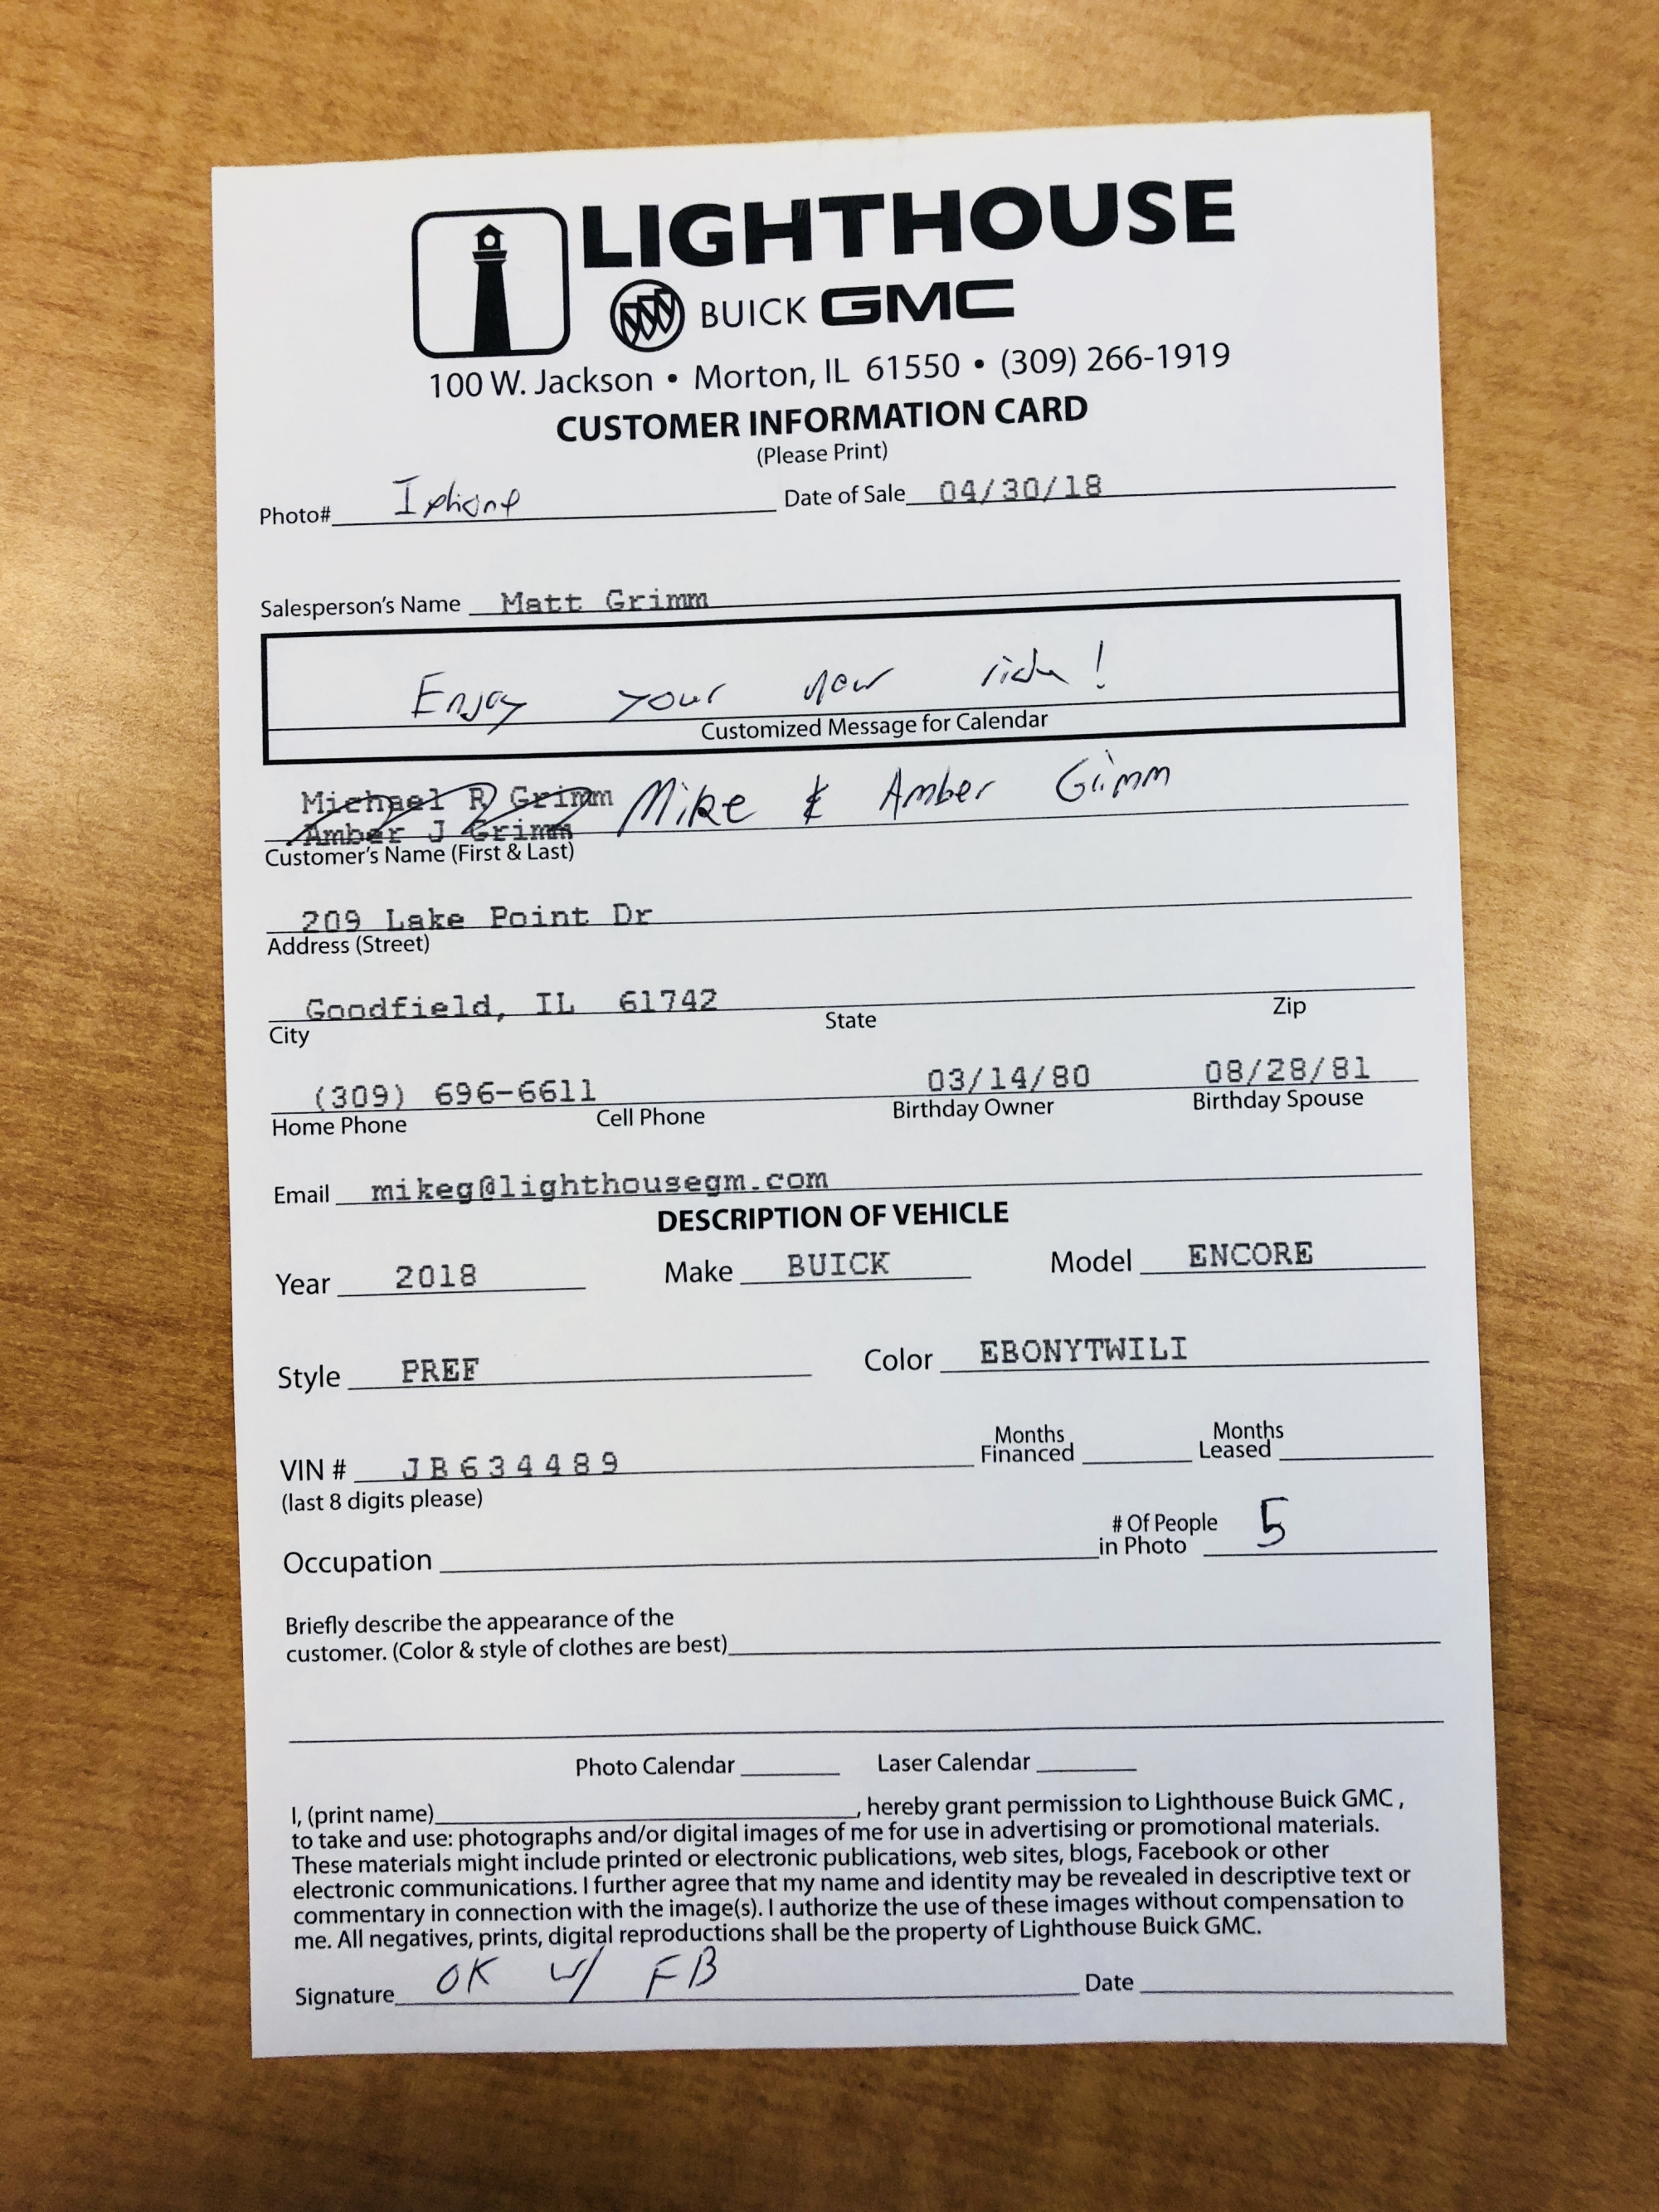 LIGHTHOUSE
BUICK GMC
100 W. Jackson • Morton, IL 61550 • (309) 266-1919
CUSTOMER INFORMATION CARD
(Please Print)
Photo# Iphone Date of Sale 04/30/18
Salesperson's Name Matt Grimm
Enjoy your new ride!
Customized Message for Calendar
Michael R Grimm Mike & Amber Grimm
Amber J Grimm
Customer's Name (First & Last)
209 Lake Point Dr
Address (Street)
Goodfield, IL 61742
City State Zip
(309) 696-6611 03/14/80 08/28/81
Home Phone Cell Phone Birthday Owner Birthday Spouse
Email mikeg@lighthousegm.com
DESCRIPTION OF VEHICLE
Year 2018 Make BUICK Model ENCORE
Style PREF Color EBONYTWILI
VIN # JB634489 Months Financed Months Leased
(last 8 digits please)
Occupation # Of People in Photo 5
Briefly describe the appearance of the
customer. (Color & style of clothes are best)
Photo Calendar Laser Calendar
I, (print name) , hereby grant permission to Lighthouse Buick GMC ,
to take and use: photographs and/or digital images of me for use in advertising or promotional materials.
These materials might include printed or electronic publications, web sites, blogs, Facebook or other
electronic communications. I further agree that my name and identity may be revealed in descriptive text or
commentary in connection with the image(s). I authorize the use of these images without compensation to
me. All negatives, prints, digital reproductions shall be the property of Lighthouse Buick GMC.
Signature OK w/ FB Date